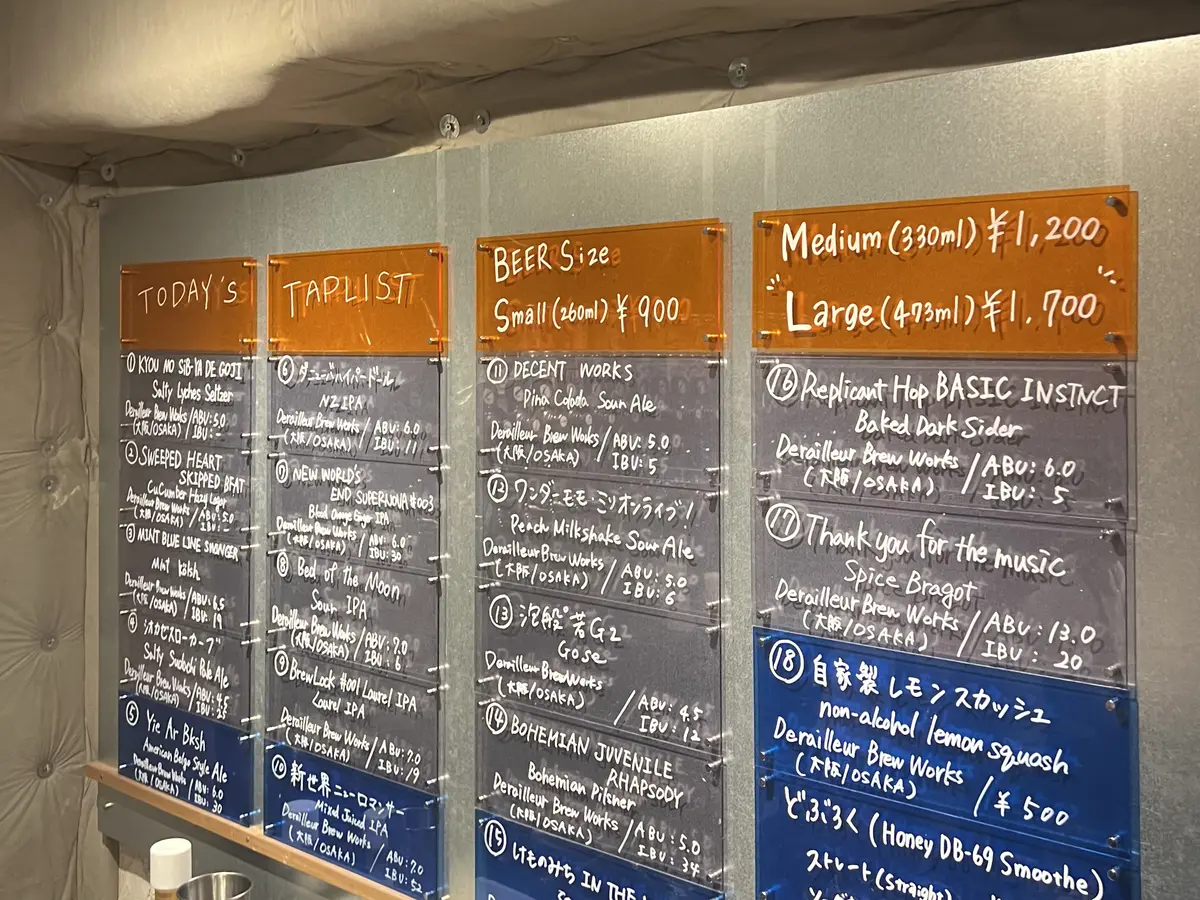 TODAY'S
① KYOU NO SIB-YA DE GOJI
Salty Lychee Seltzer
Derailleur Brew Works / ABV: 5.0
(大阪/OSAKA) / IBU: -
② SWEEPED HEART
SKIPPED BEAT
CuCumber Hazy Lager
Derailleur Brew Works / ABV: 5.0
(大阪/OSAKA) / IBU:
③ MINT BLUE LINE SWINGER
Mint
Derailleur Brew Works / ABV: 6.5
(大阪/OSAKA) / IBU: 19
④ シオカゼスローカーブ
Salty Sudachi Pale Ale
Derailleur Brew Works / ABV: 4.5
(大阪/OSAKA) / IBU: 25
⑤ Yie Ar Bksh
American Belgo Style Ale
Derailleur Brew Works / ABV: 6.0
(大阪/OSAKA) / IBU: 30
TAPLIST
⑥ ダニューバハイパードール
NZ IPA
Derailleur Brew Works / ABV: 6.0
(大阪/OSAKA) / IBU: 11
⑦ NEW WORLD'S
END SUPERNOVA #003
Blood Orange Ginger IPA
Derailleur Brew Works / ABV: 6.0
(大阪/OSAKA) / IBU: 30
⑧ Bed of the Moon
Sour IPA
Derailleur Brew Works / ABV: 7.0
(大阪/OSAKA) / IBU: 6
⑨ BrewLock #001 Laurel IPA
Laurel IPA
Derailleur Brew Works / ABV: 7.0
(大阪/OSAKA) / IBU: 19
⑩ 新世界ニューロマンサー
Mixed Juiced IPA
Derailleur Brew Works / ABV: 7.0
(大阪/OSAKA) / IBU: 52
BEER Size
Small (260ml) ¥ 900
⑪ DECENT WORKS
Pina Colada Sour Ale
Derailleur Brew Works / ABV: 5.0
(大阪/OSAKA) / IBU: 5
⑫ ワンダーモモ・ミリオンライブ!
Peach Milkshake Sour Ale
Derailleur Brew Works / ABV: 5.0
(大阪/OSAKA) / IBU: 6
⑬ 泡般若G2
Gose
Derailleur Brew Works / ABV: 4.5
(大阪/OSAKA) / IBU: 12
⑭ BOHEMIAN JUVENILE
RHAPSODY
Bohemian Pilsner
Derailleur Brew Works / ABV: 5.0
(大阪/OSAKA) / IBU: 34
⑮ けものみち IN THE
Medium (330ml) ¥1,200
Large (473ml) ¥1.700
⑯ Replicant Hop BASIC INSTNCT
Baked Dark Sider
Derailleur Brew Works / ABV: 6.0
(大阪/OSAKA) / IBU: 5
⑰ Thank you for the music
Spice Bragot
Derailleur Brew Works / ABV: 13.0
(大阪/OSAKA) / IBU: 20
⑱ 自家製 レモンスカッシュ
non-alcohol lemon squash
Derailleur Brew Works
(大阪/OSAKA) / ¥ 500
どぶろく (Honey DB-69 Smoothe)
ストレート (Straight)